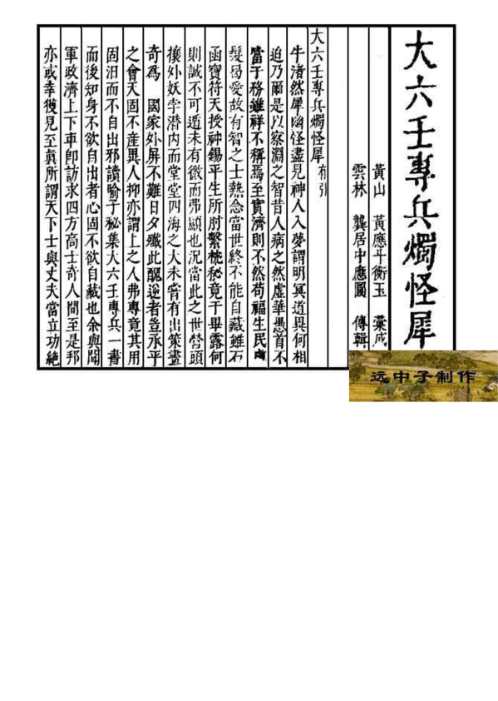 大六壬專兵燭怪犀
黃山 黃應斗衡玉 彙成
雲林 龔居中應圓 傳輯
大六壬專兵燭怪犀 有引
牛渚然犀幽怪盡見神人入夢謂明冥道異何相
迫乃爾是以察淵之智昔人病之然虛華愚首不
當于務雖祥不稱焉至實濟則不然苟福生民
髮曷愛故有智之士熱念當世終不能自藏雖石
函寶符天授神錫平生所 繫桃秘竟于畢露何
則誠不可遁未有微而弗顯也況當此之世
攘外妖孛潛內而堂堂四海之大未嘗有出策
奇為 國家外屏不難日夕殲此醜逆者豈承平
之會天固不產異人抑亦謂上之人弗專竟其用
固汨而不自出邪讀喻于秘集大六壬專兵一書
而後知身不欲自出者心固不欲自藏也余與聞
軍政濟上下車即訪求四方高士奇人間至是邦
亦或幸獲見至真所謂天下士與丈夫當立功絕
远中子制作